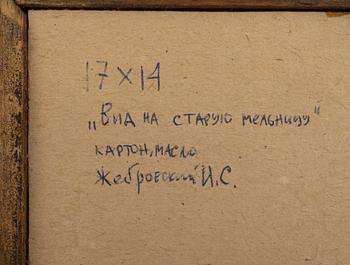 17 х 14
„Вид на старую мельницу"
картон, масло
Жебровский И.С.